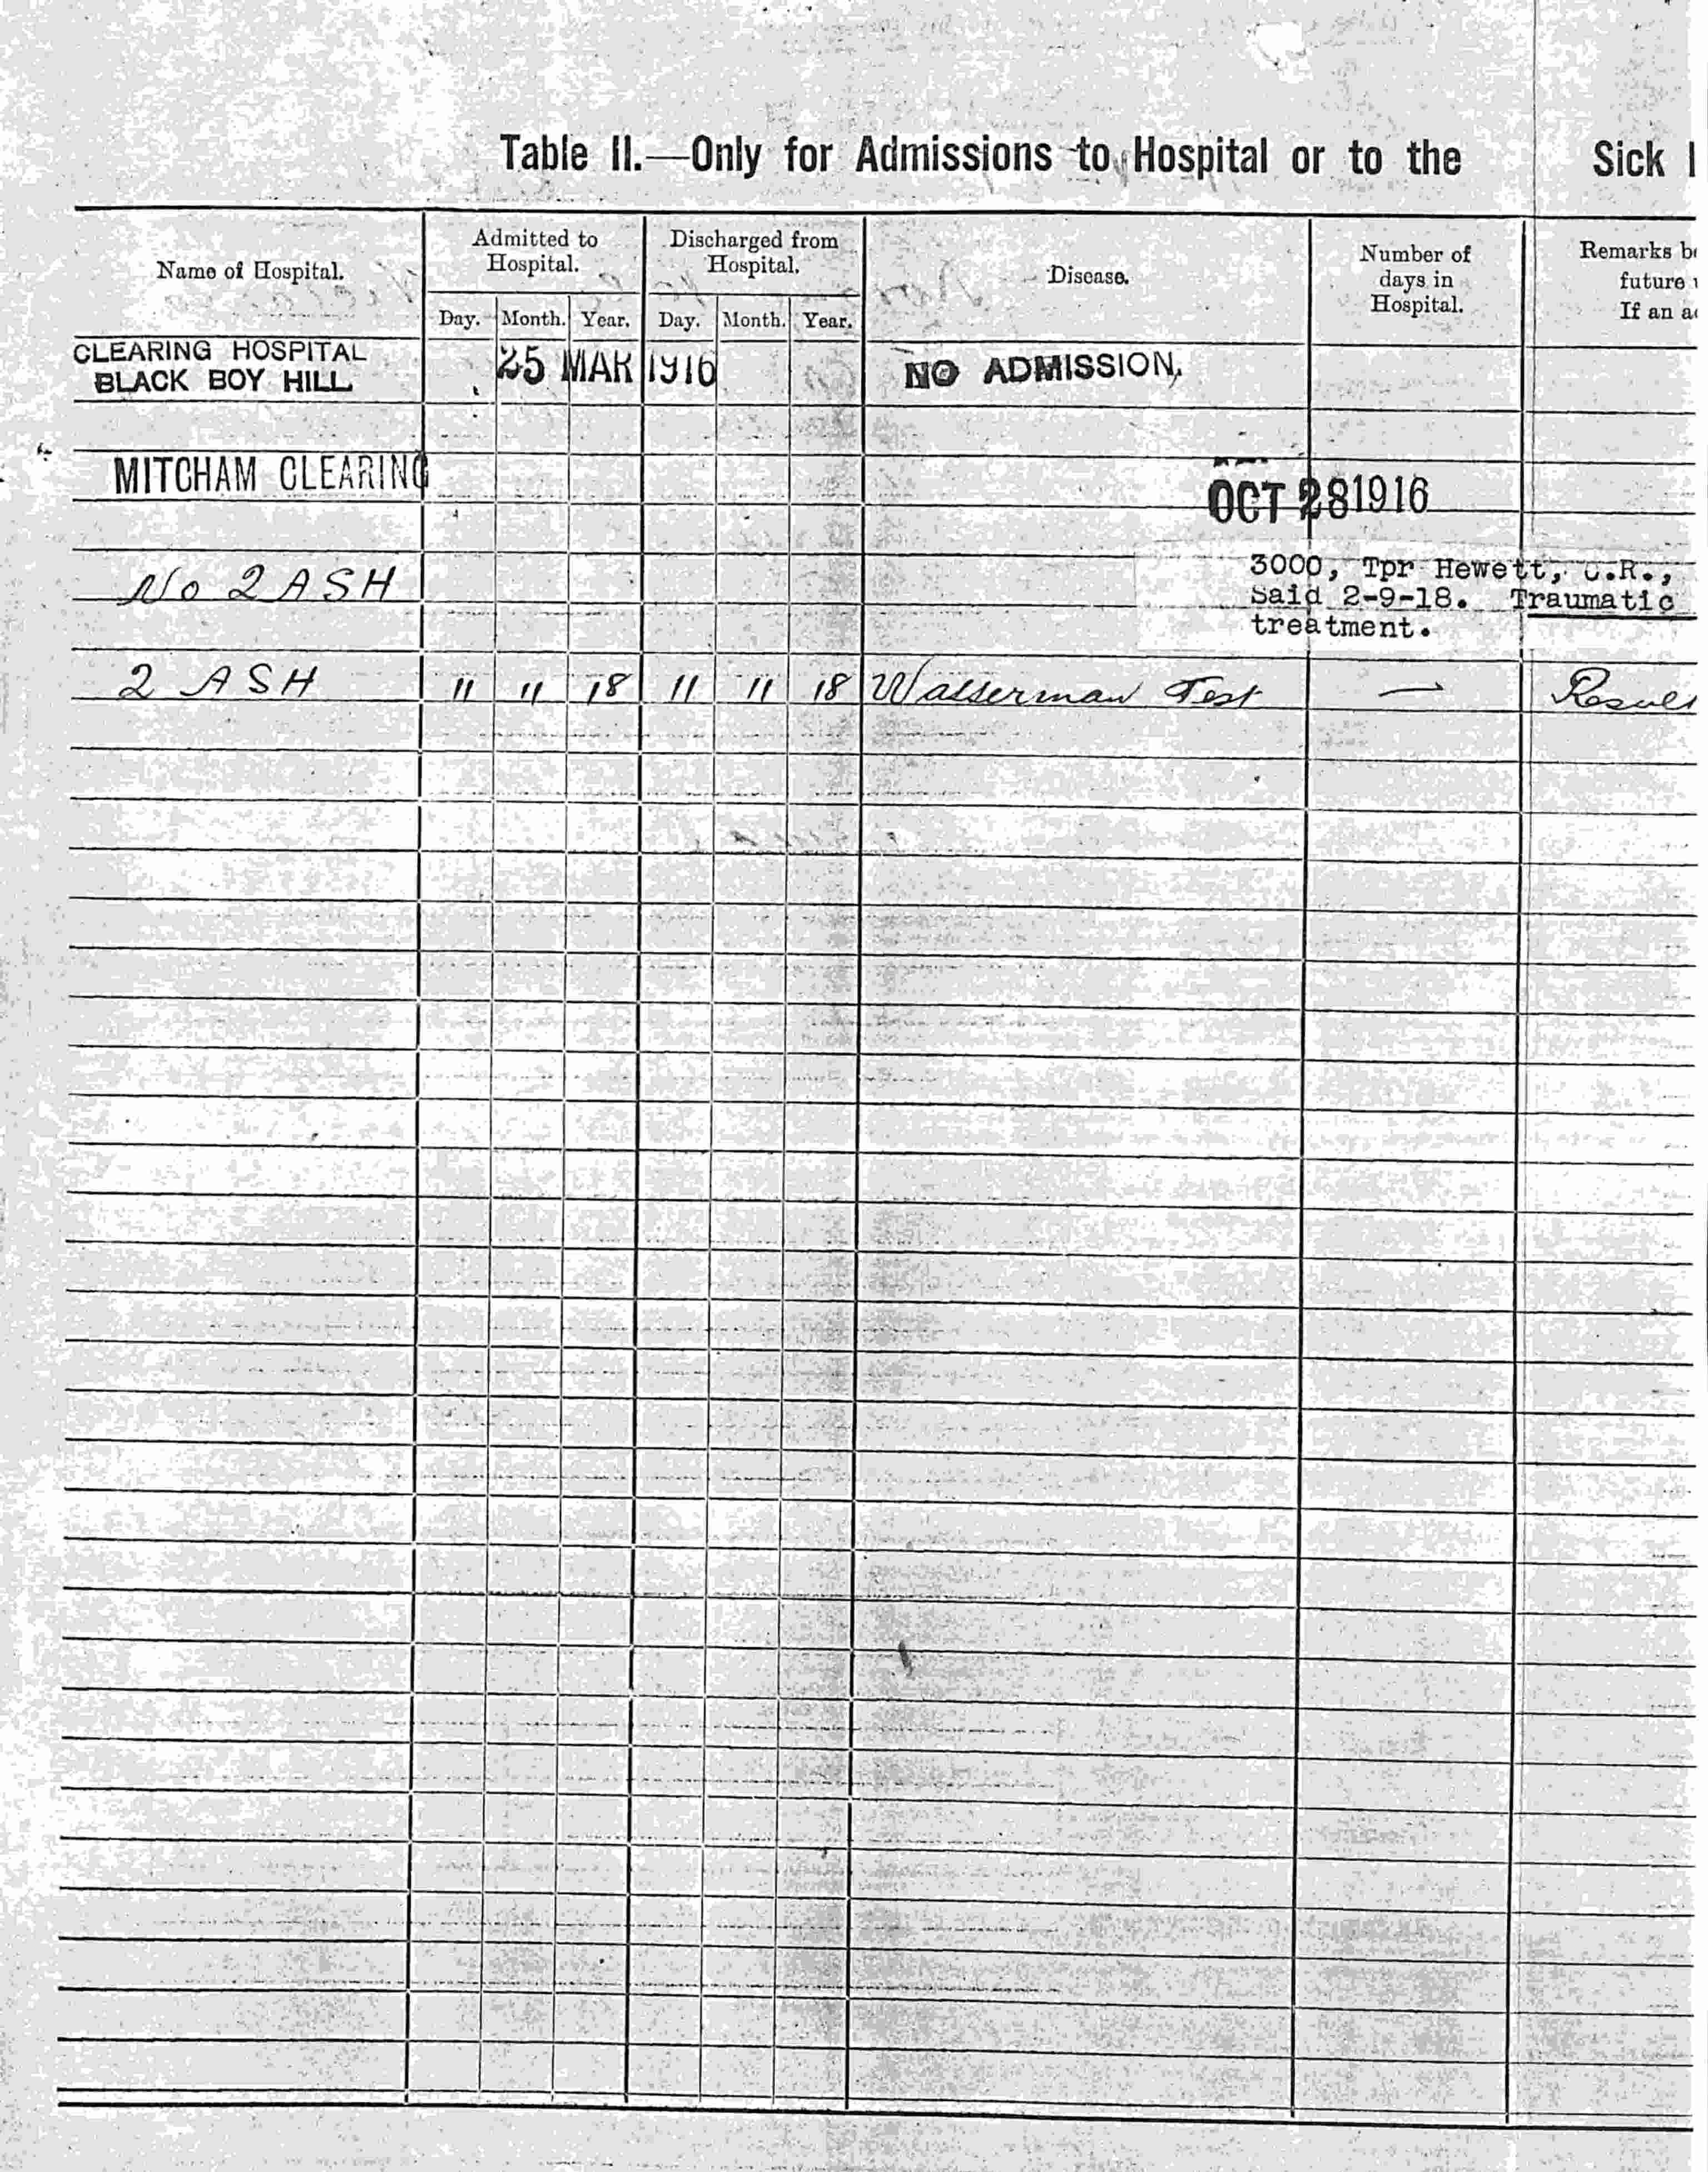 Table II.—Only for Admissions to Hospital or to the Sick
Name of Hospital. Admitted to Hospital. Discharged from Hospital. Disease. Number of days in Hospital. Remarks
future
If an
Day. Month. Year. Day. Month. Year.
CLEARING HOSPITAL
BLACK BOY HILL 25 MAR 1916 NO ADMISSION,
MITCHAM CLEARING
OCT 28 1916
No 2 ASH
3000, Tpr Hewett, .R.,
said 2-9-18. Traumatic
treatment.
2 ASH 11 11 18 11 11 18 Wasserman Test —